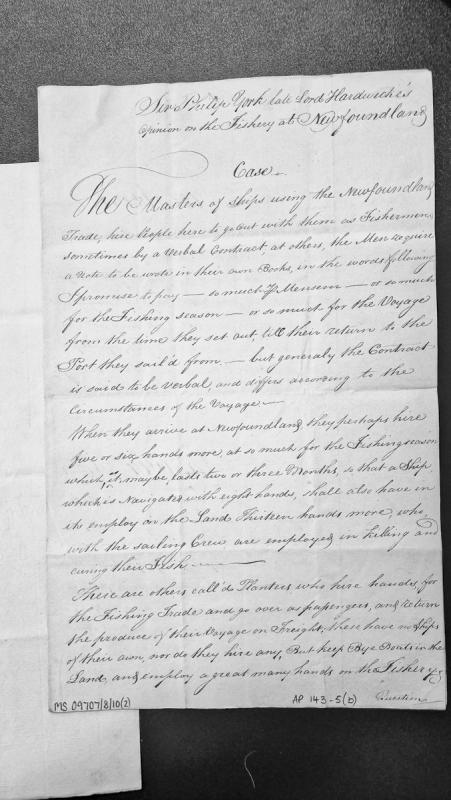 Sir Philip York late Lord Hardwicke's
Opinion on the Fishery at Newfoundland
Case
The Masters of Ships using the Newfoundland
Trade, hire People here to go out with them as Fishermen
sometimes by a Verbal Contract, at others, the Men require
a Note to be wrote in their own Books, in the words following
I promise to pay — so much P Mensem — or so much
for the Fishing season — or so much for the Voyage
from the time they set out, till their return to the
Port they sail'd from. — but generaly the Contract
is said to be verbal and differs according to the
circumstances of the Voyage —
When they arrive at Newfoundland, they perhaps hire
five or six hands more, at so much for the Fishing season
which, it, maybe lasts two or three Months, so that a Ship
which is Navigated with eight hands, shall also have in
its employ on the Land Thirteen hands more, who,
with the sailing Crew are employed in killing and
curing their Fish —
There are others call'd Planters who hire hands, for
the Fishing Trade and go over as passengers, and return
the produce of their Voyage on Freight, these have no Ships
of their own, nor do they hire any, But keep Bye Boats in the
Land, and employ a great many hands on the Fishery,
Question
MS 09707/8/10(2)
AP 143-5(b)